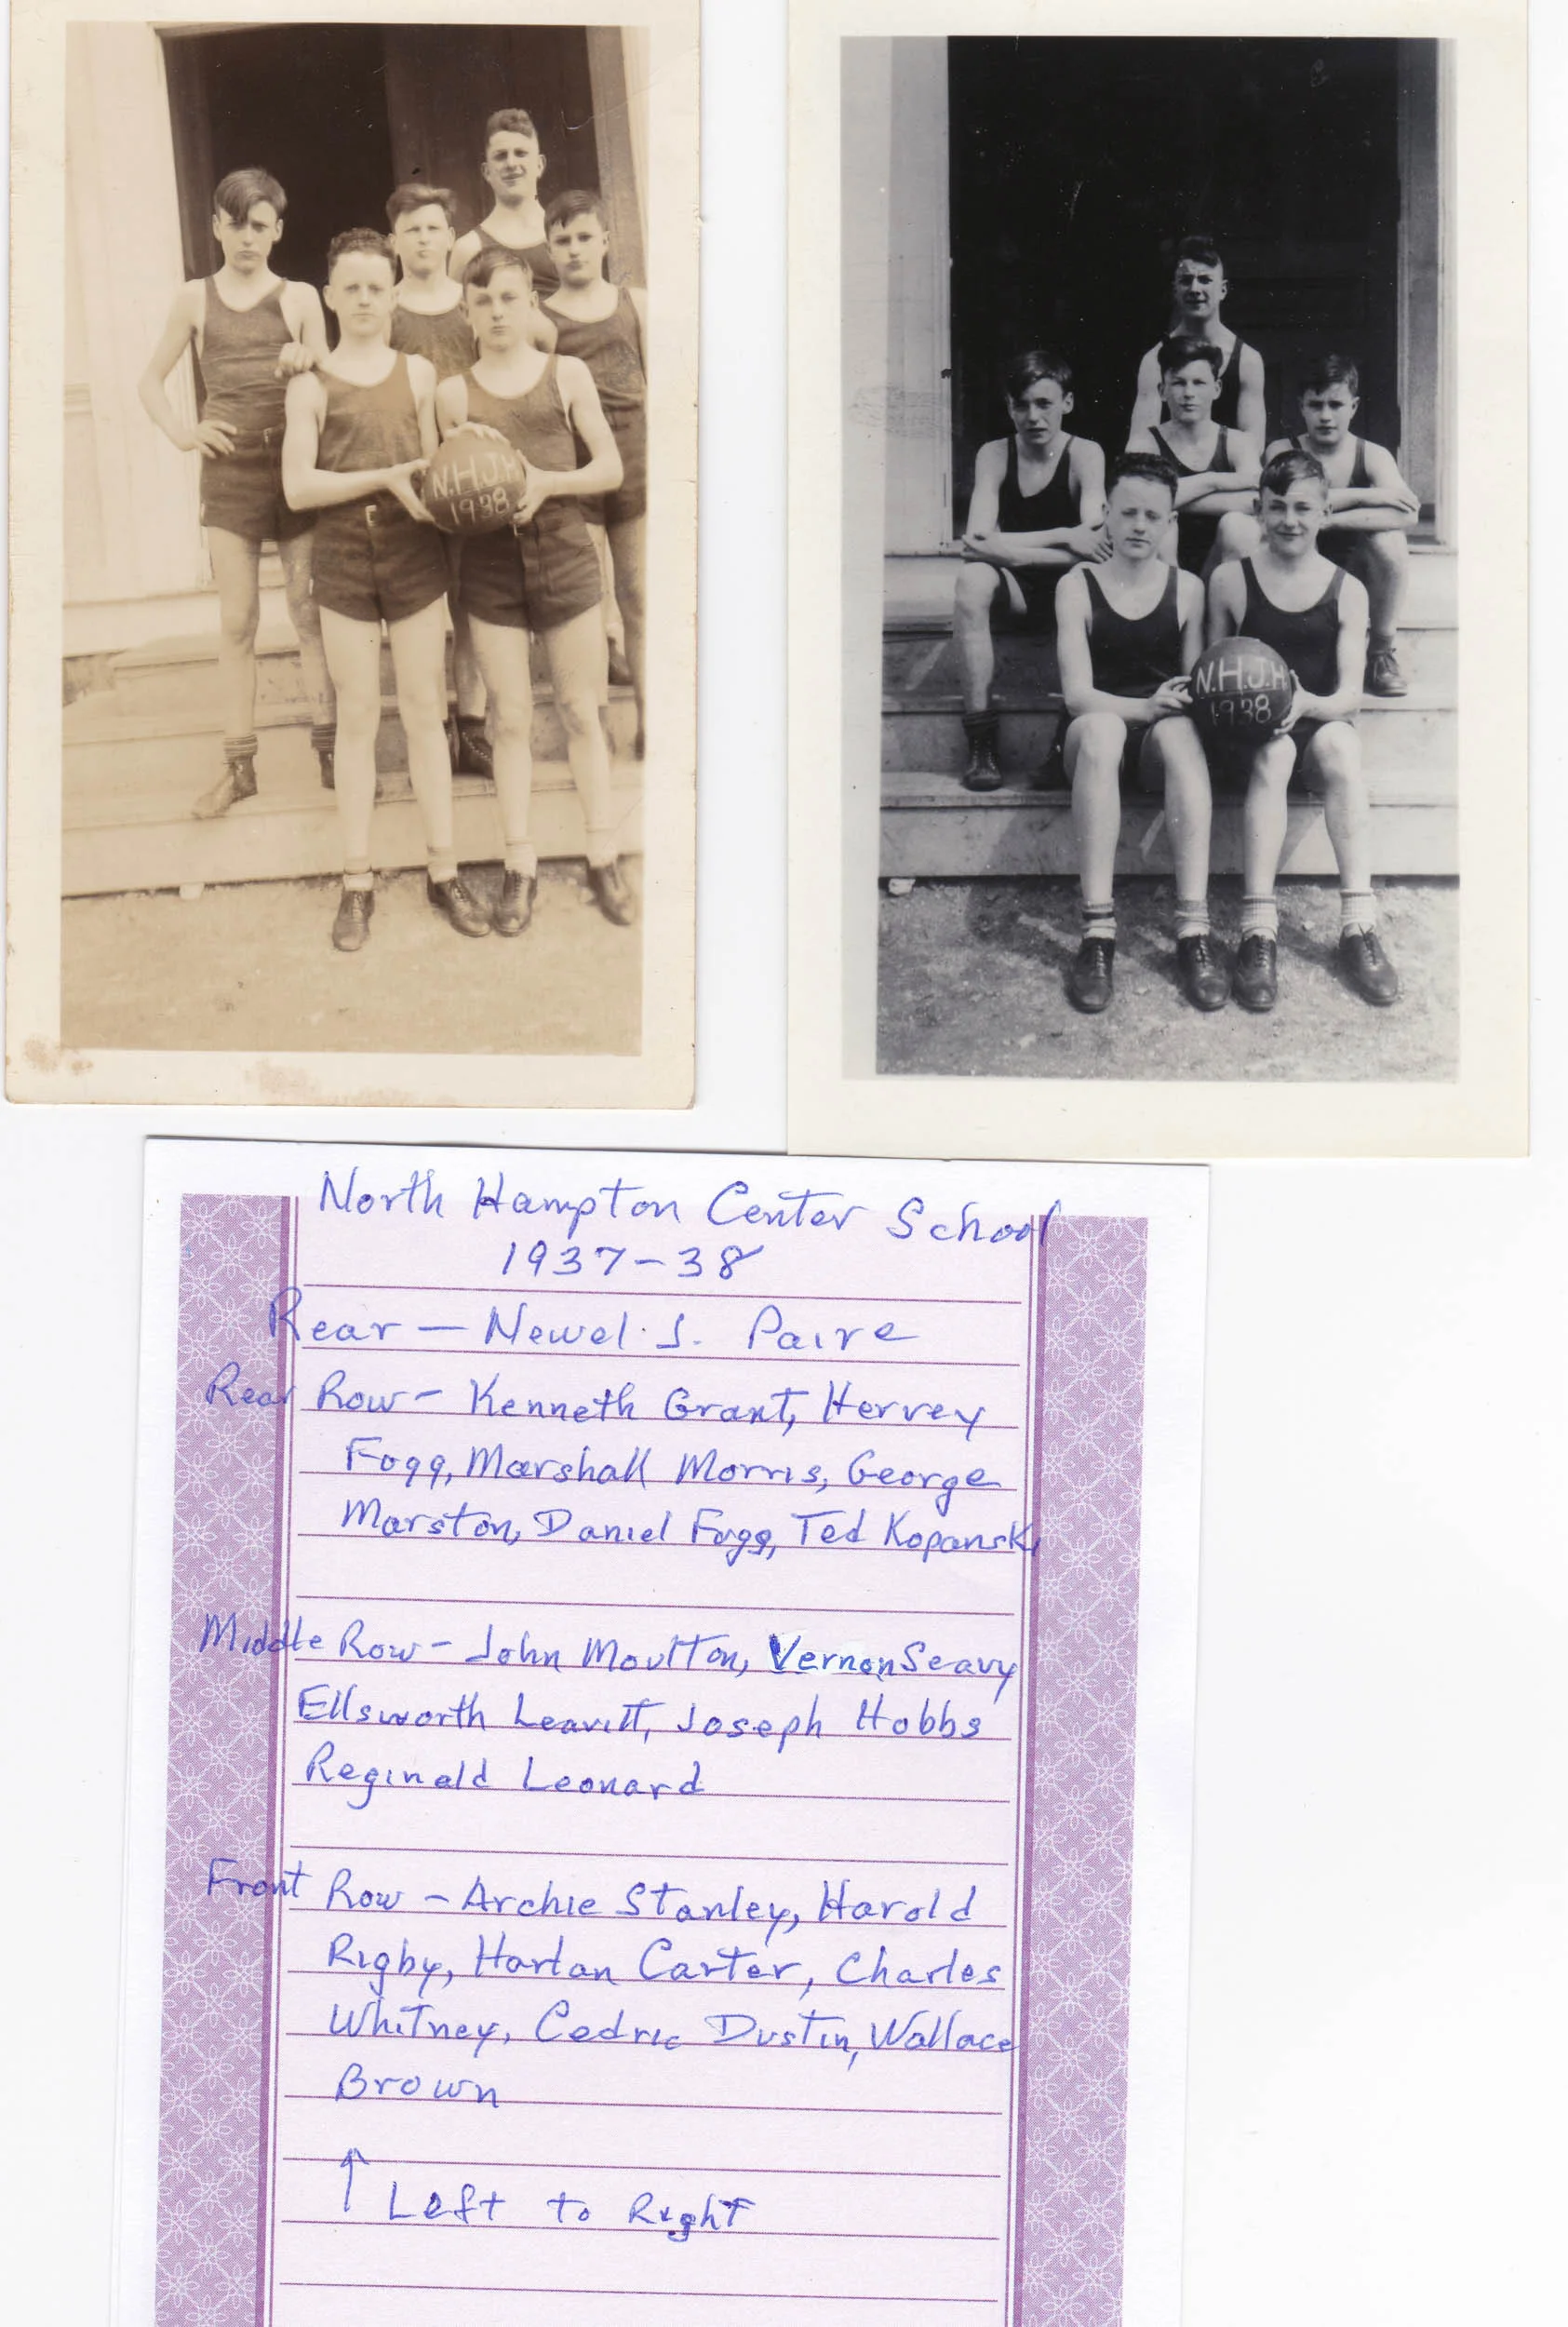 N.H.J.H
1938
N.H.J.H
1938
North Hampton Center School
1937-38
Rear - Newel. J. Paire
Rear Row - Kenneth Grant, Hervey
Fogg, Marshall Morris, George
Marston, Daniel Fogg, Ted Kopanski
Middle Row - John Moulton, Vernon Seavy
Ellsworth Leavitt, Joseph Hobbs
Reginald Leonard
Front Row - Archie Stanley, Harold
Rigby, Harlan Carter, Charles
Whitney, Cedric Dustin, Wallace
Brown
↑ Left to Right